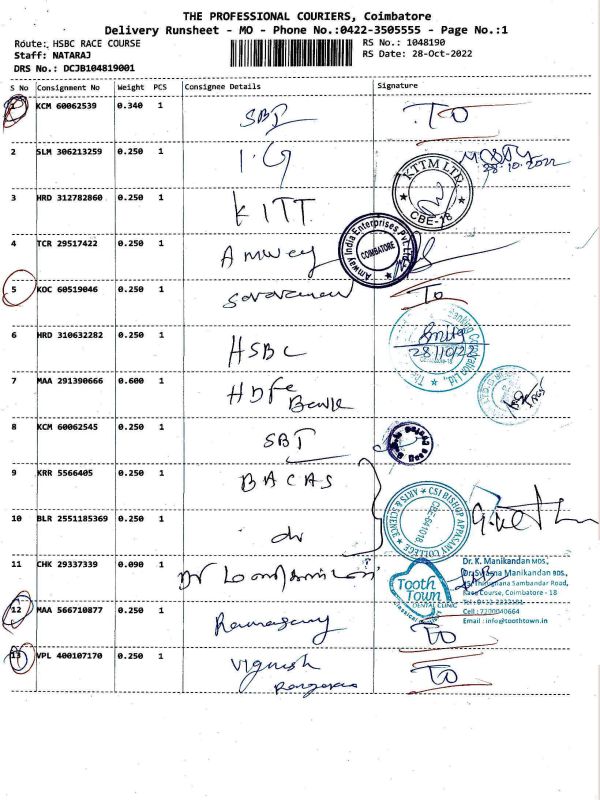 THE PROFESSIONAL COURIERS, Coimbatore
Delivery Runsheet - MO - Phone No.:0422-3505555 - Page No.:1
Route: HSBC RACE COURSE
RS No.: 1048190
Staff: NATARAJ
RS Date: 28-Oct-2022
DRS No.: DCJB104819001
S No Consignment No Weight PCS Consignee Details Signature
1 KCM 60062539 0.340 1 SBI To
2 SLM 306213259 0.250 1 I.G
28.10.2022
KTTM LTD.
CBE-18
3 HRD 312782860 0.250 1 KITT
4 TCR 29517422 0.250 1 Amway
Amway India Enterprises Pvt. Ltd.
COIMBATORE
5 KOC 60519046 0.250 1 To
6 HRD 310632282 0.250 1 HSBC
Banking Corporation Ltd.
28/10/22
7 MAA 291390666 0.600 1 HDFC
Bank
8 KCM 60062545 0.250 1 SBI
9 KRR 5566405 0.250 1 BACAS
CSI BISHOP APPASAMY COLLEGE
ARTS & SCIENCE
CBE-641018
10 BLR 2551185369 0.250 1 do
11 CHK 29337339 0.090 1 Dr
Tooth
Town
DENTAL CLINIC
Dr. K. Manikandan MDS.,
Manikandan BDS.,
Sambandar Road,
Race Course, Coimbatore - 18
Cell : 7200040664
Email : info@toothtown.in
12 MAA 566710877 0.250 1 Ramasamy To
13 VPL 400107170 0.250 1 Vignesh To